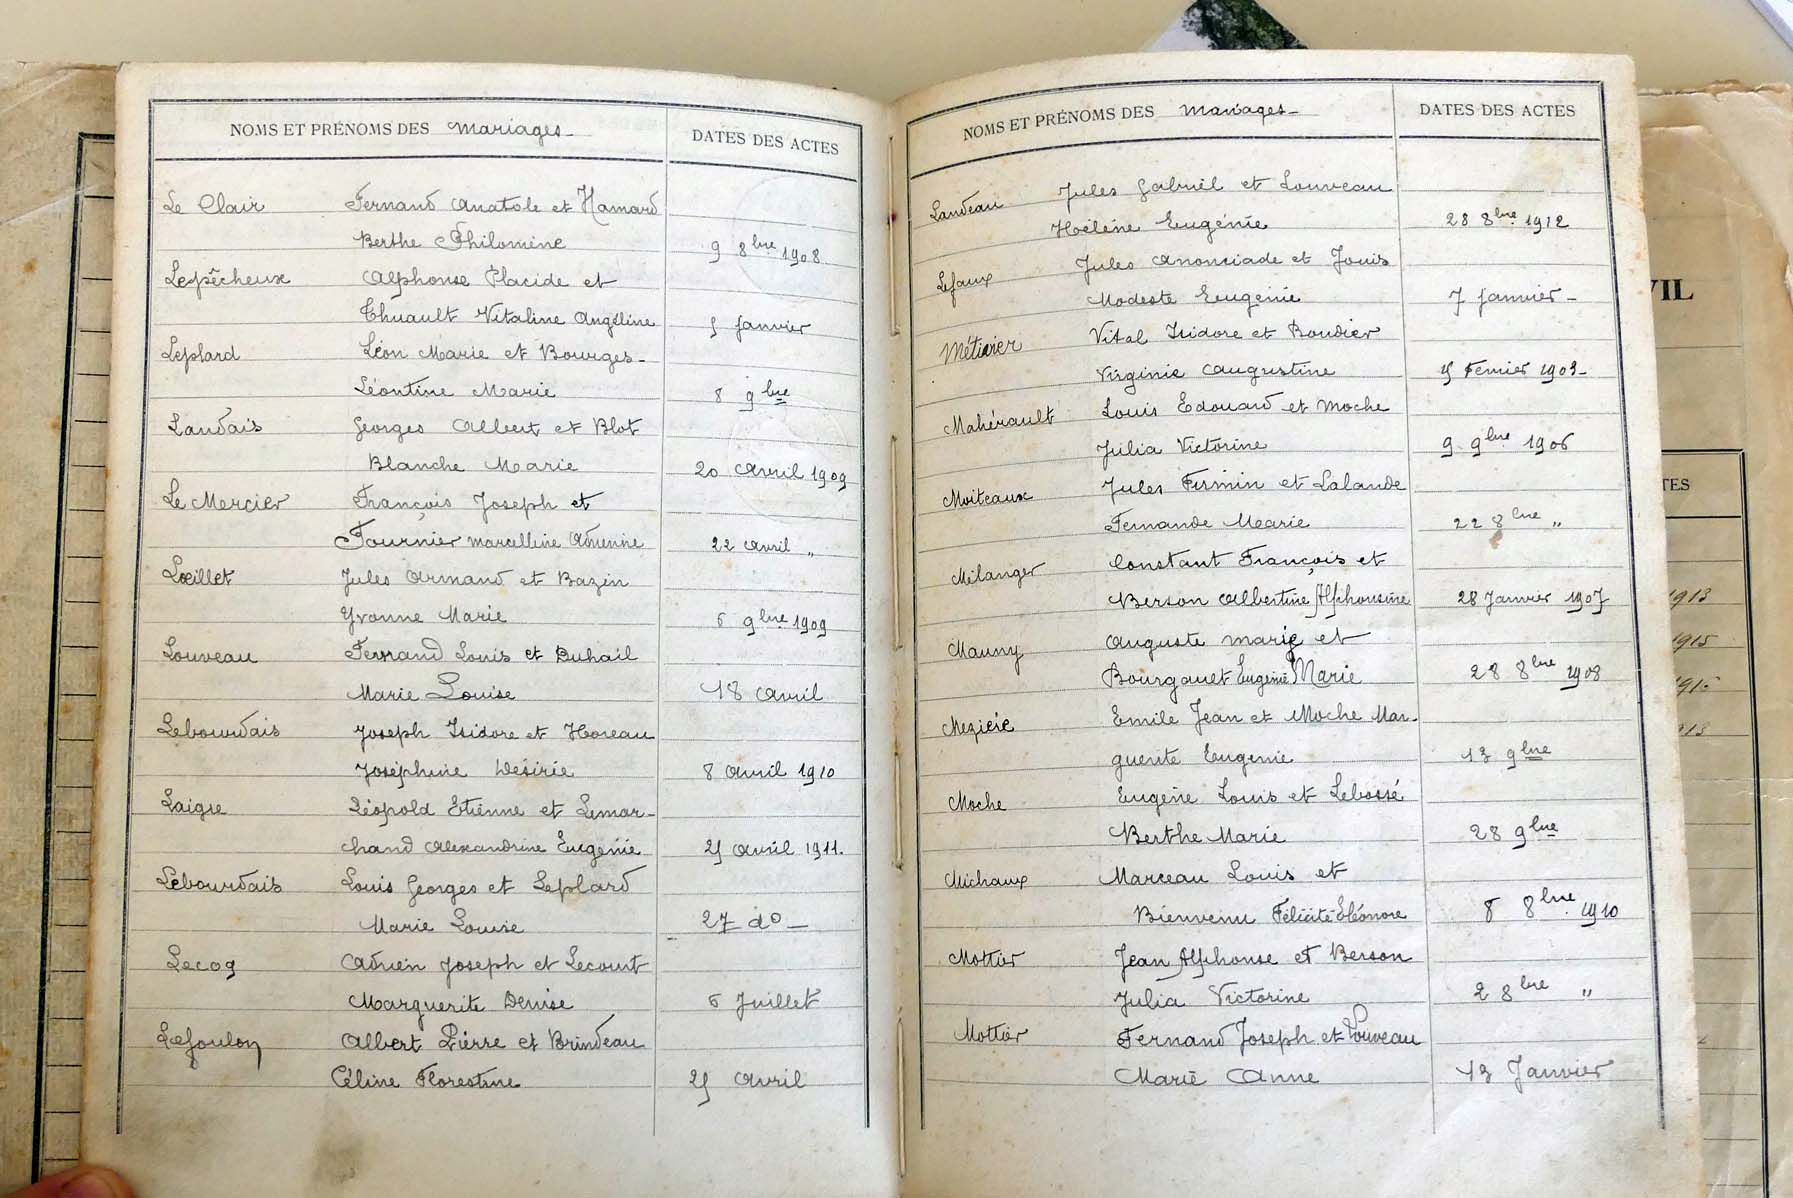 NOMS ET PRÉNOMS DES mariages DATES DES ACTES
Le Clair Fernand Anatole et Hamard
Berthe Philomène 9 8bre 1908
Lepêcheux Alphonse Placide et
Thuault Vitaline Angéline 5 Janvier
Leplard Léon Marie et Bourges
Léontine Marie 8 9bre
Landais Georges Albert et Blot
Blanche Marie 20 Avril 1909
Le Mercier François Joseph et
Fournier Marcelline Adrienne 22 Avril "
Lœillet Jules Armand et Bazin
Yvonne Marie 6 9bre 1909
Louveau Fernand Louis et Duhail
Marie Louise 18 Avril
Lebourdais Joseph Isidore et Horeau
Joséphine Désirée 8 Avril 1910
Laigre Léopold Etienne et Lemar-
chand Alexandrine Eugénie 25 Avril 1911.
Lebourdais Louis Georges et Leplard
Marie Louise 27 do
Lecoq Adrien Joseph et Lecourt
Marguerite Denise 6 Juillet
Lefoulon Albert Pierre et Brindeau
Céline Florestine 25 Avril
NOMS ET PRÉNOMS DES mariages DATES DES ACTES
Landeau Jules Gabriel et Louveau
Hélène Eugénie 28 8bre 1912
Lefaux Jules Anonciade et Jouis
Modeste Eugénie 7 Janvier
Métivier Vital Isidore et Boudier
Virginie Augustine Février 1903
Mahérault Louis Edouard et Moche
Julia Victorine 9 9bre 1906
Moiteaux Jules Firmin et Lalande
Fernande Marie 22 8bre "
Mélanger Constant François et
Berson Albertine Alphonsine 28 Janvier 1907
Mauny Auguste Marie et
Bourgauet Eugénie Marie 28 8bre 1908
Mezière Emile Jean et Moche Mar-
guerite Eugénie 13 9bre
Moche Eugène Louis et Lebossé
Berthe Marie 28 9bre
Michaux Marceau Louis et
Bienvenu Félicité Eléonore 8 8bre 1910
Mottier Jean Alphonse et Berson
Julia Victorine 2 8bre "
Mottier Fernand Joseph et Louveau
Marie Anne 13 Janvier
VIL
TES
1913
1915
1915
913